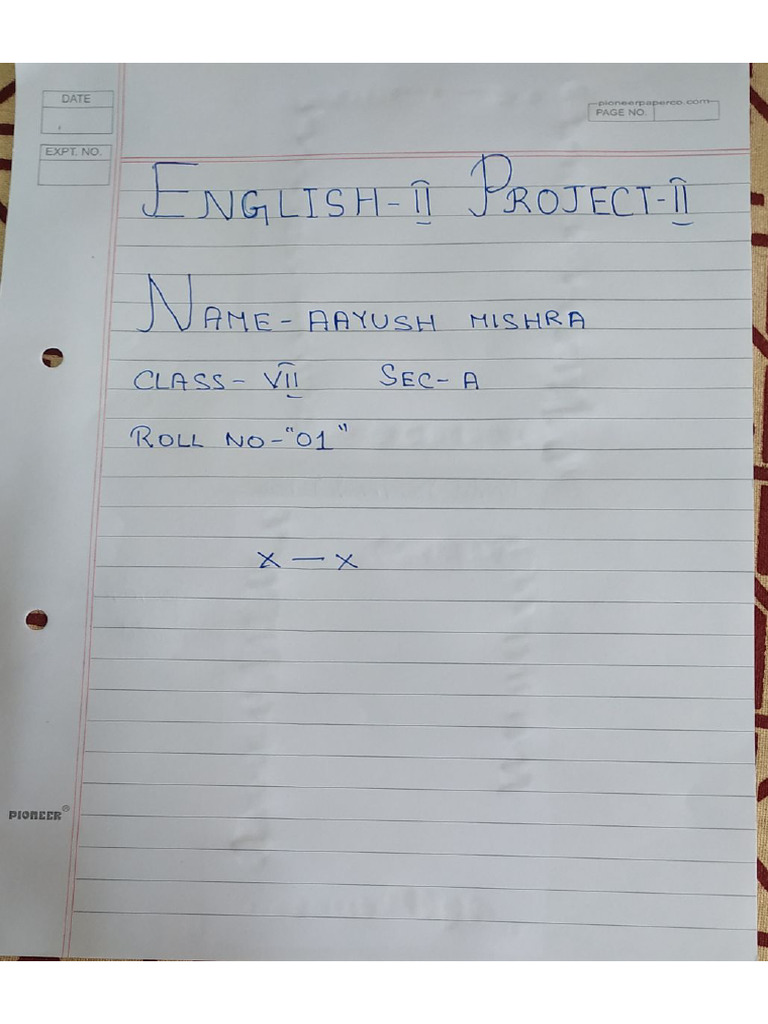 DATE
pioneerpaperco.com
PAGE NO.
EXPT. NO.
ENGLISH-II PROJECT-II
NAME- AAYUSH MISHRA
CLASS- VII SEC- A
ROLL NO-"01"
x — x
PIONEER®